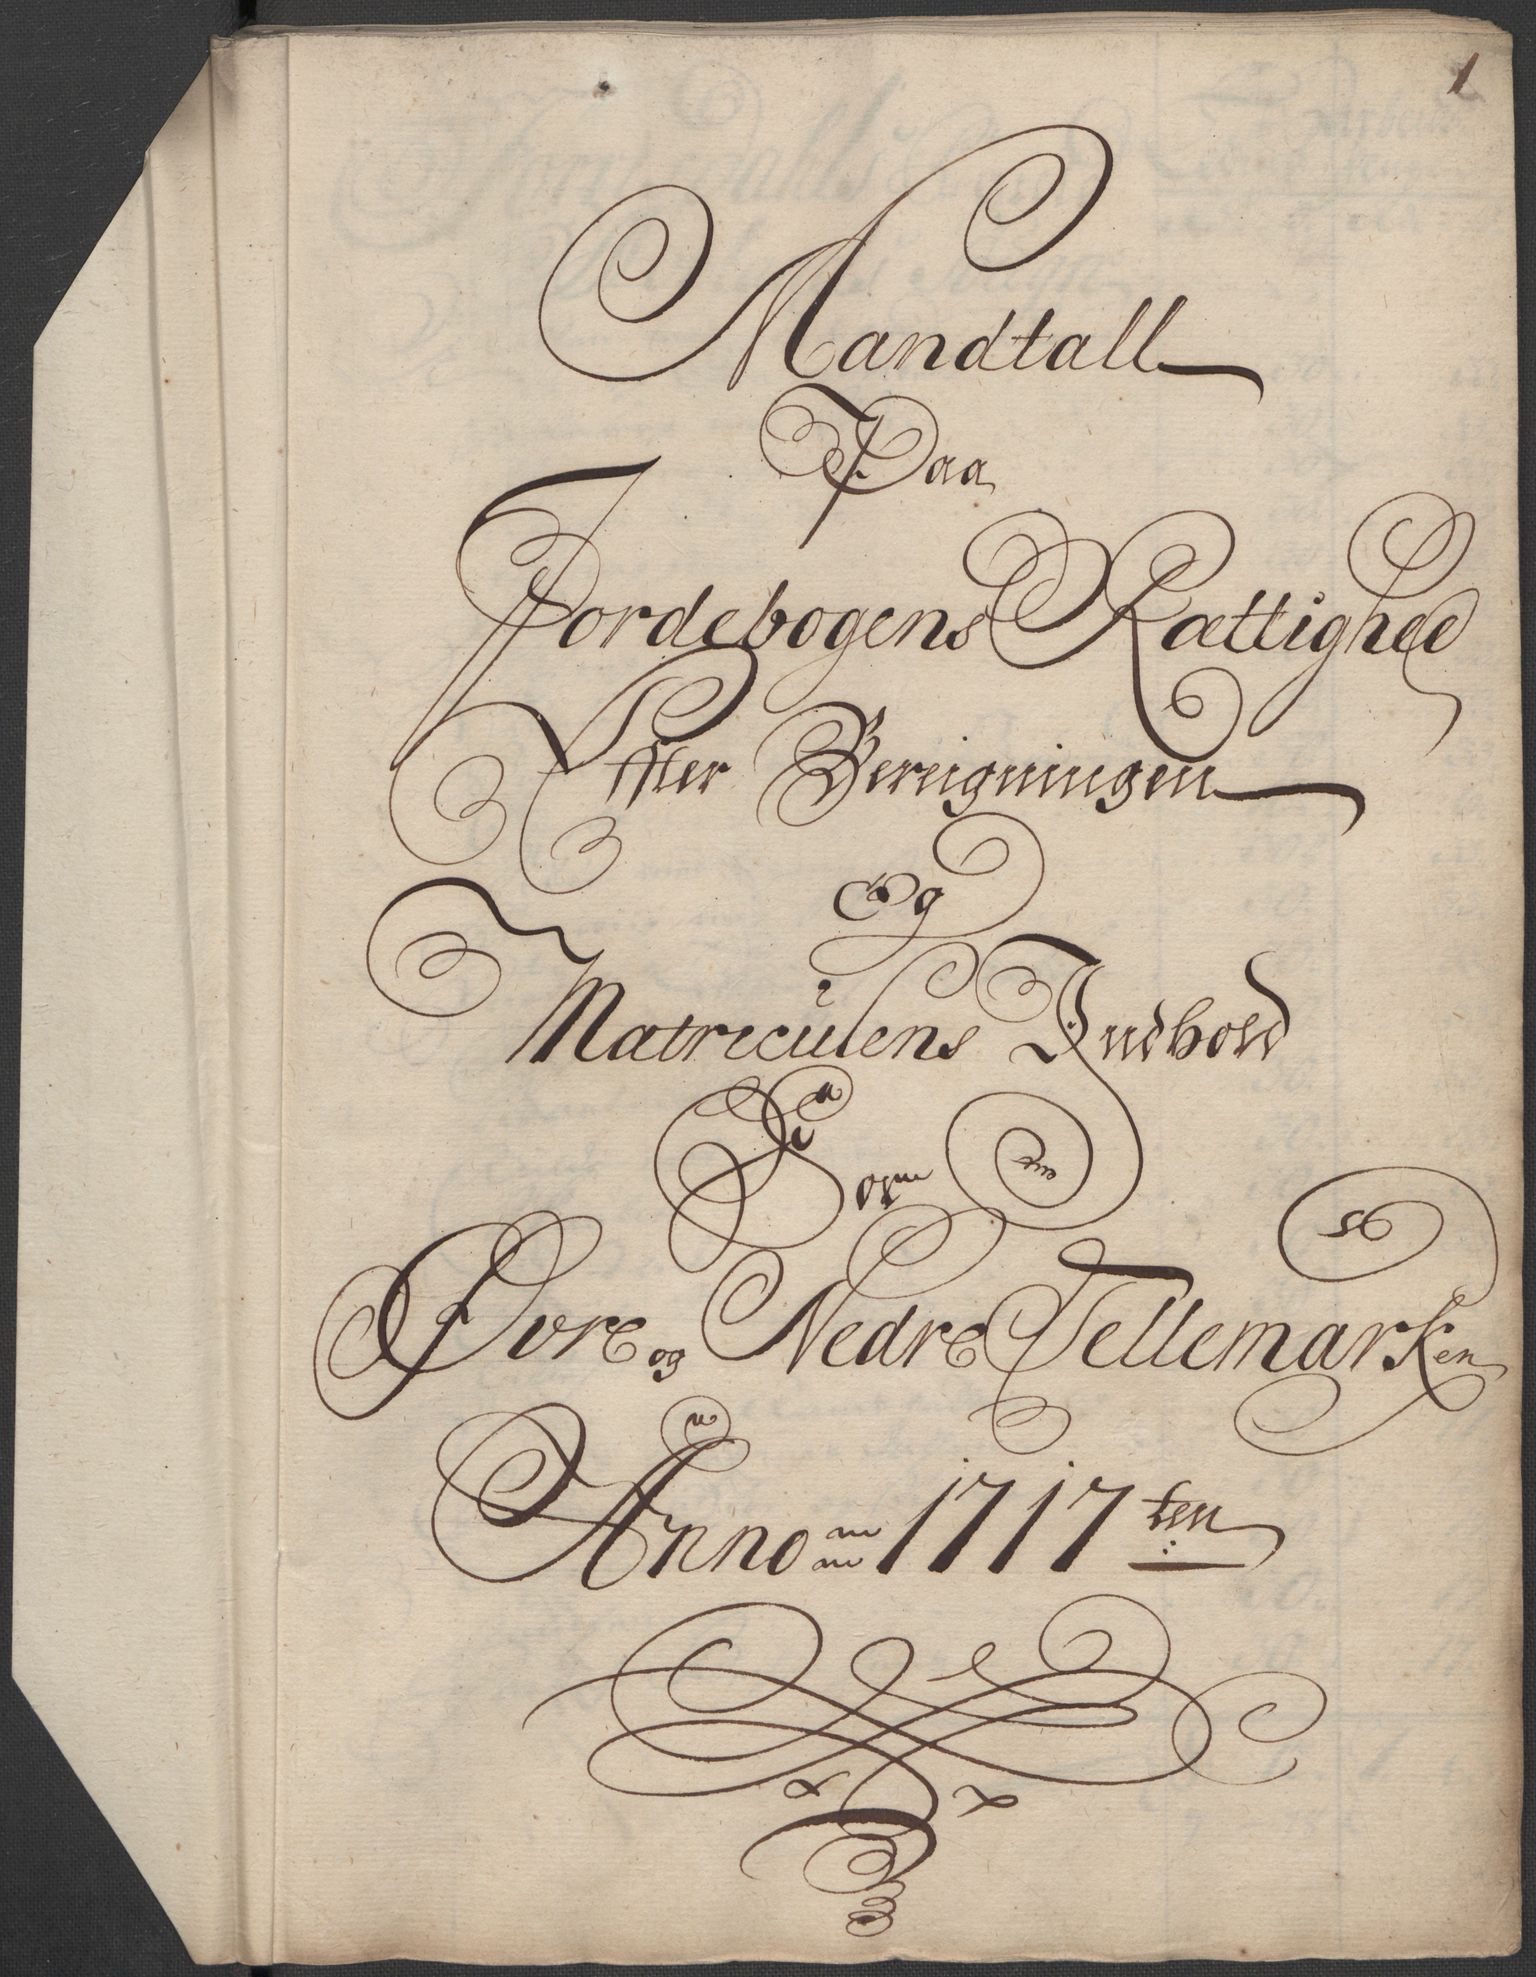 1
Mandtall
Paa
Jordebogens Rættighed
Effter Bereigningen
Og
Matriculens Indhold
Som
Øvre og Nedre Tellemarken
Anno 1717 ten